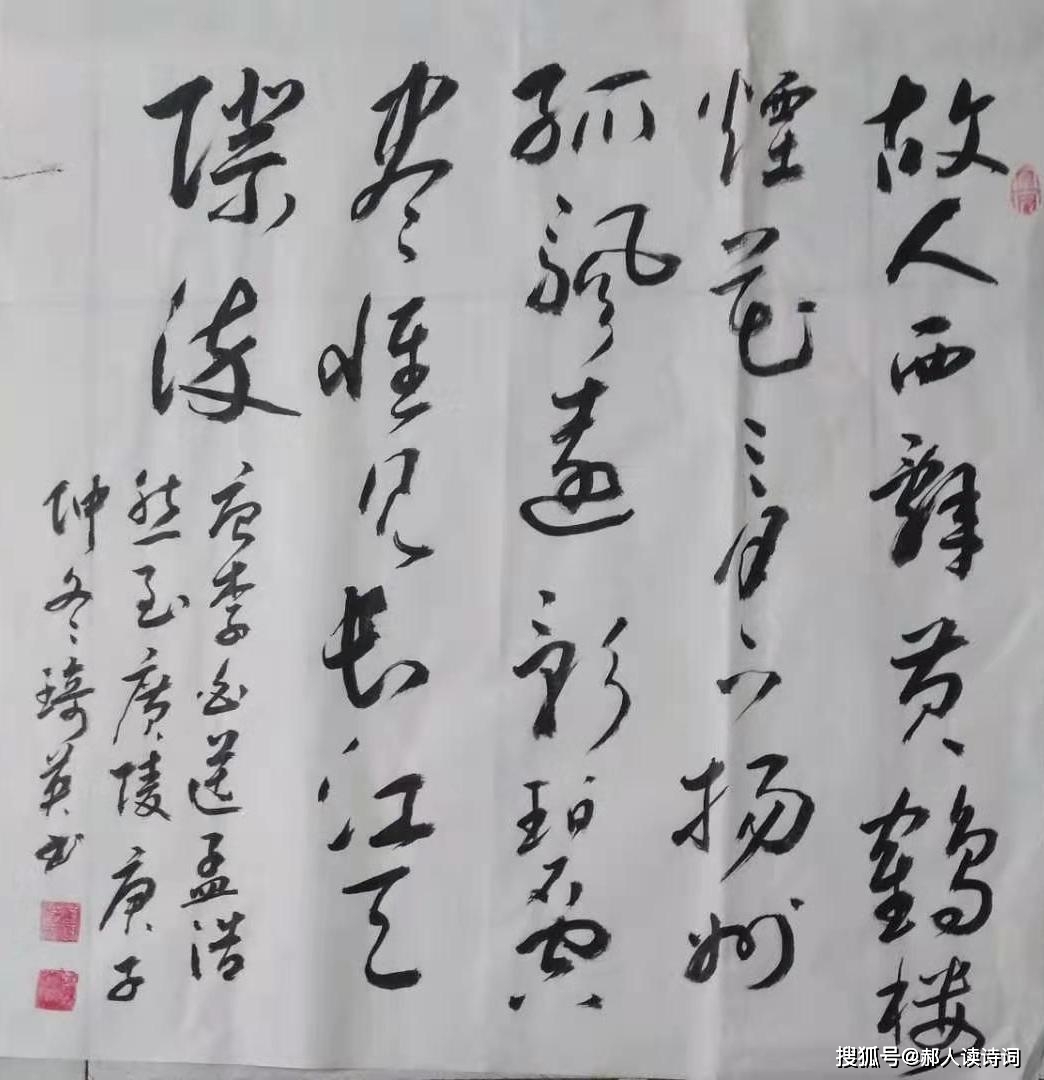 故人西辭黄鶴楼
煙花三月下揚州
孤颿遠影碧空
尽惟见长江天
際流
唐李白送孟浩
然至廣陵庚子
仲冬琦英书
搜狐号@郝人读诗词